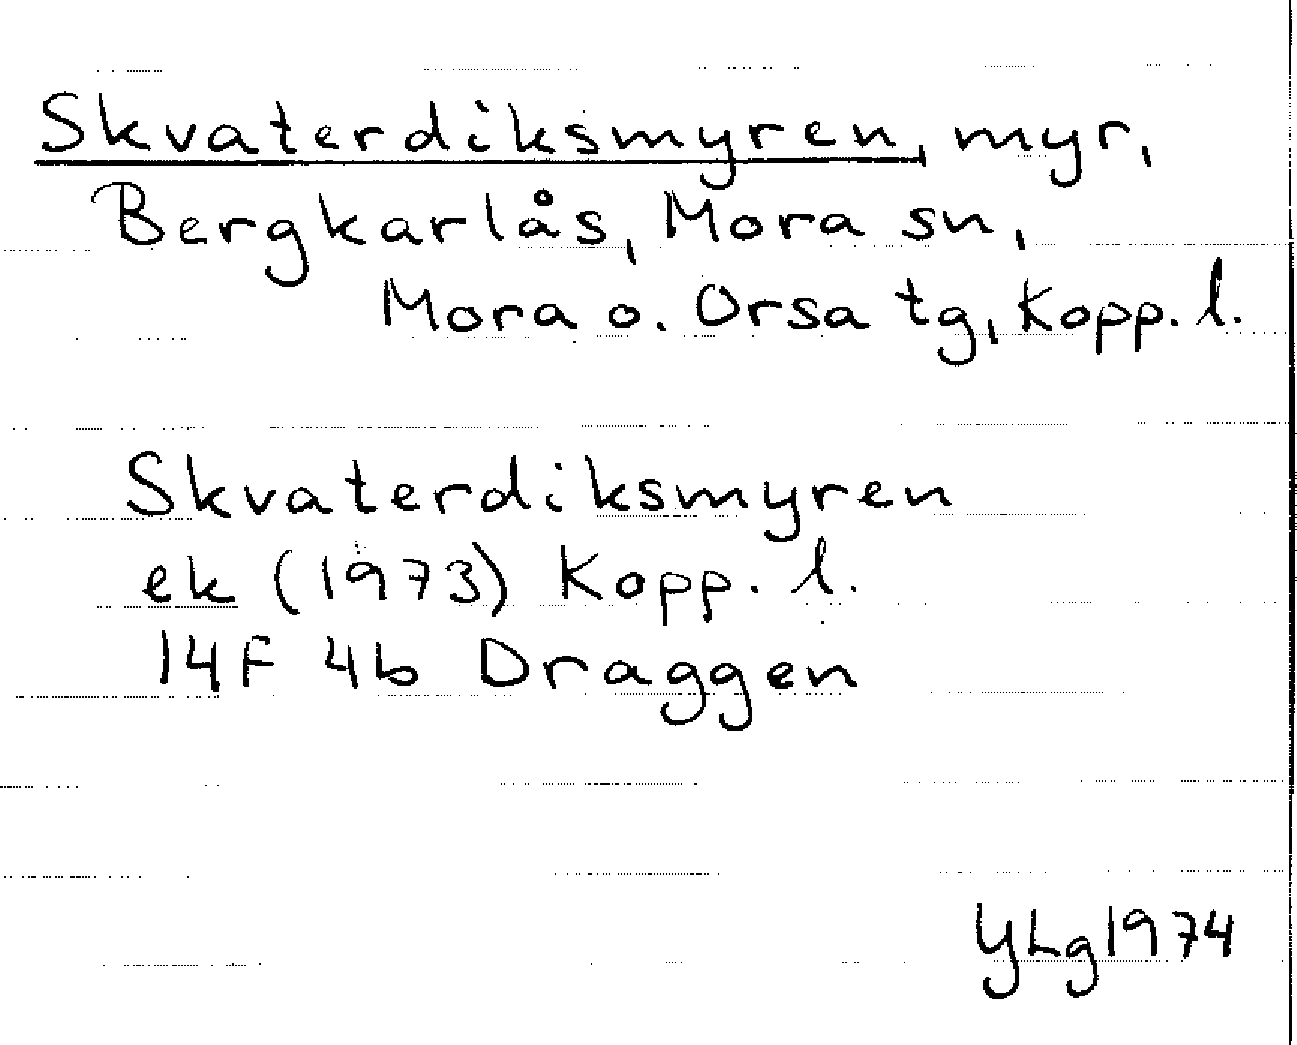 Skvaterdiksmyren, myr,
Bergkarlås, Mora sn,
Mora o. Orsa tg, Kopp. l.
Skvaterdiksmyren
ek (1973) Kopp. l.
14F 4b Draggen
YLg 1974